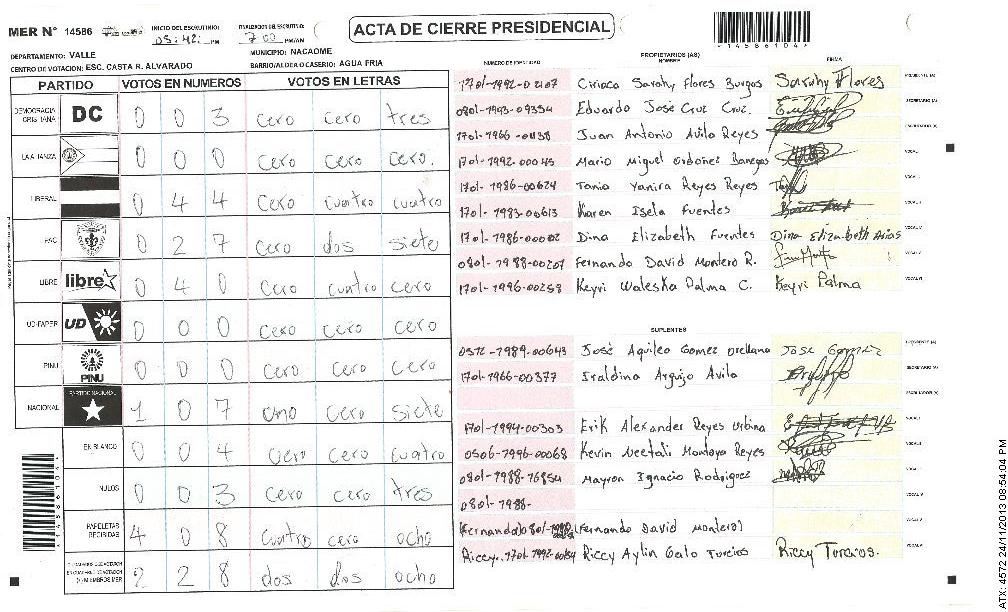 MER N° 14586
INICIO DEL ESCRUTINIO: 05:42: PM
FINALIZACION DEL ESCRUTINIO: 7:00 PM/AM
ACTA DE CIERRE PRESIDENCIAL
14586104
DEPARTAMENTO: VALLE
MUNICIPIO: NACAOME
CENTRO DE VOTACION: ESC. CASTA R. ALVARADO
BARRIO/ALDEA O CASERIO: AGUA FRIA
PARTIDO VOTOS EN NUMEROS VOTOS EN LETRAS
DEMOCRACIA CRISTIANA DC 0 0 3 cero cero tres
LA ALIANZA 0 0 0 cero cero cero.
LIBERAL 0 4 4 cero cuatro cuatro
PAC 0 2 7 cero dos siete
LIBRE libre 0 4 0 cero cuatro cero
UD-FAPER UD 0 0 0 cero cero cero
PINU PINU 0 0 0 cero cero cero
NACIONAL PARTIDO NACIONAL 1 0 7 uno cero siete
EN BLANCO 0 0 4 cero cero cuatro
NULOS 0 0 3 cero cero tres
PAPELETAS RECIBIDAS 4 0 8 cuatro cero ocho
2 2 8 dos dos ocho
PROPIETARIOS (AS)
NUMERO DE IDENTIDAD NOMBRE FIRMA
1701-1992-02107 Ciriaca Sarahy Flores Burgos Sarahy Flores
0801-1993-09354 Eduardo José Cruz Cruz.
1701-1966-01138 Juan Antonio Avila Reyes
1701-1992-00045 Mario Miguel Ordoñez Banegas
1701-1986-00624 Tania Yanira Reyes Reyes
1701-1983-00613 Karen Isela Fuentes
1701-1986-00002 Dina Elizabeth Fuentes Dina Elizabeth Arias
0801-1988-00207 Fernando David Montero R.
1701-1996-00258 Keyri Waleska Palma C. Keyri Palma
SUPLENTES
1989-00643 José Aquileo Gomez Orellana Jose Gomez
1701-1966-00377 Iraldina Argujo Avila
1701-1994-00303 Erik Alexander Reyes Urbina
0506-1996-00068 Kevin Neetali Montoya Reyes
0801-1988-16854 Mayron Ignacio Rodriguez
0801-1988-
(Fernando) 0801- (Fernando David Montero)
Riccy. 1701-1992- Riccy Aylin Galo Turcios Riccy Turcios.
ATX: 4572 24/11/2013 08:54:04 PM